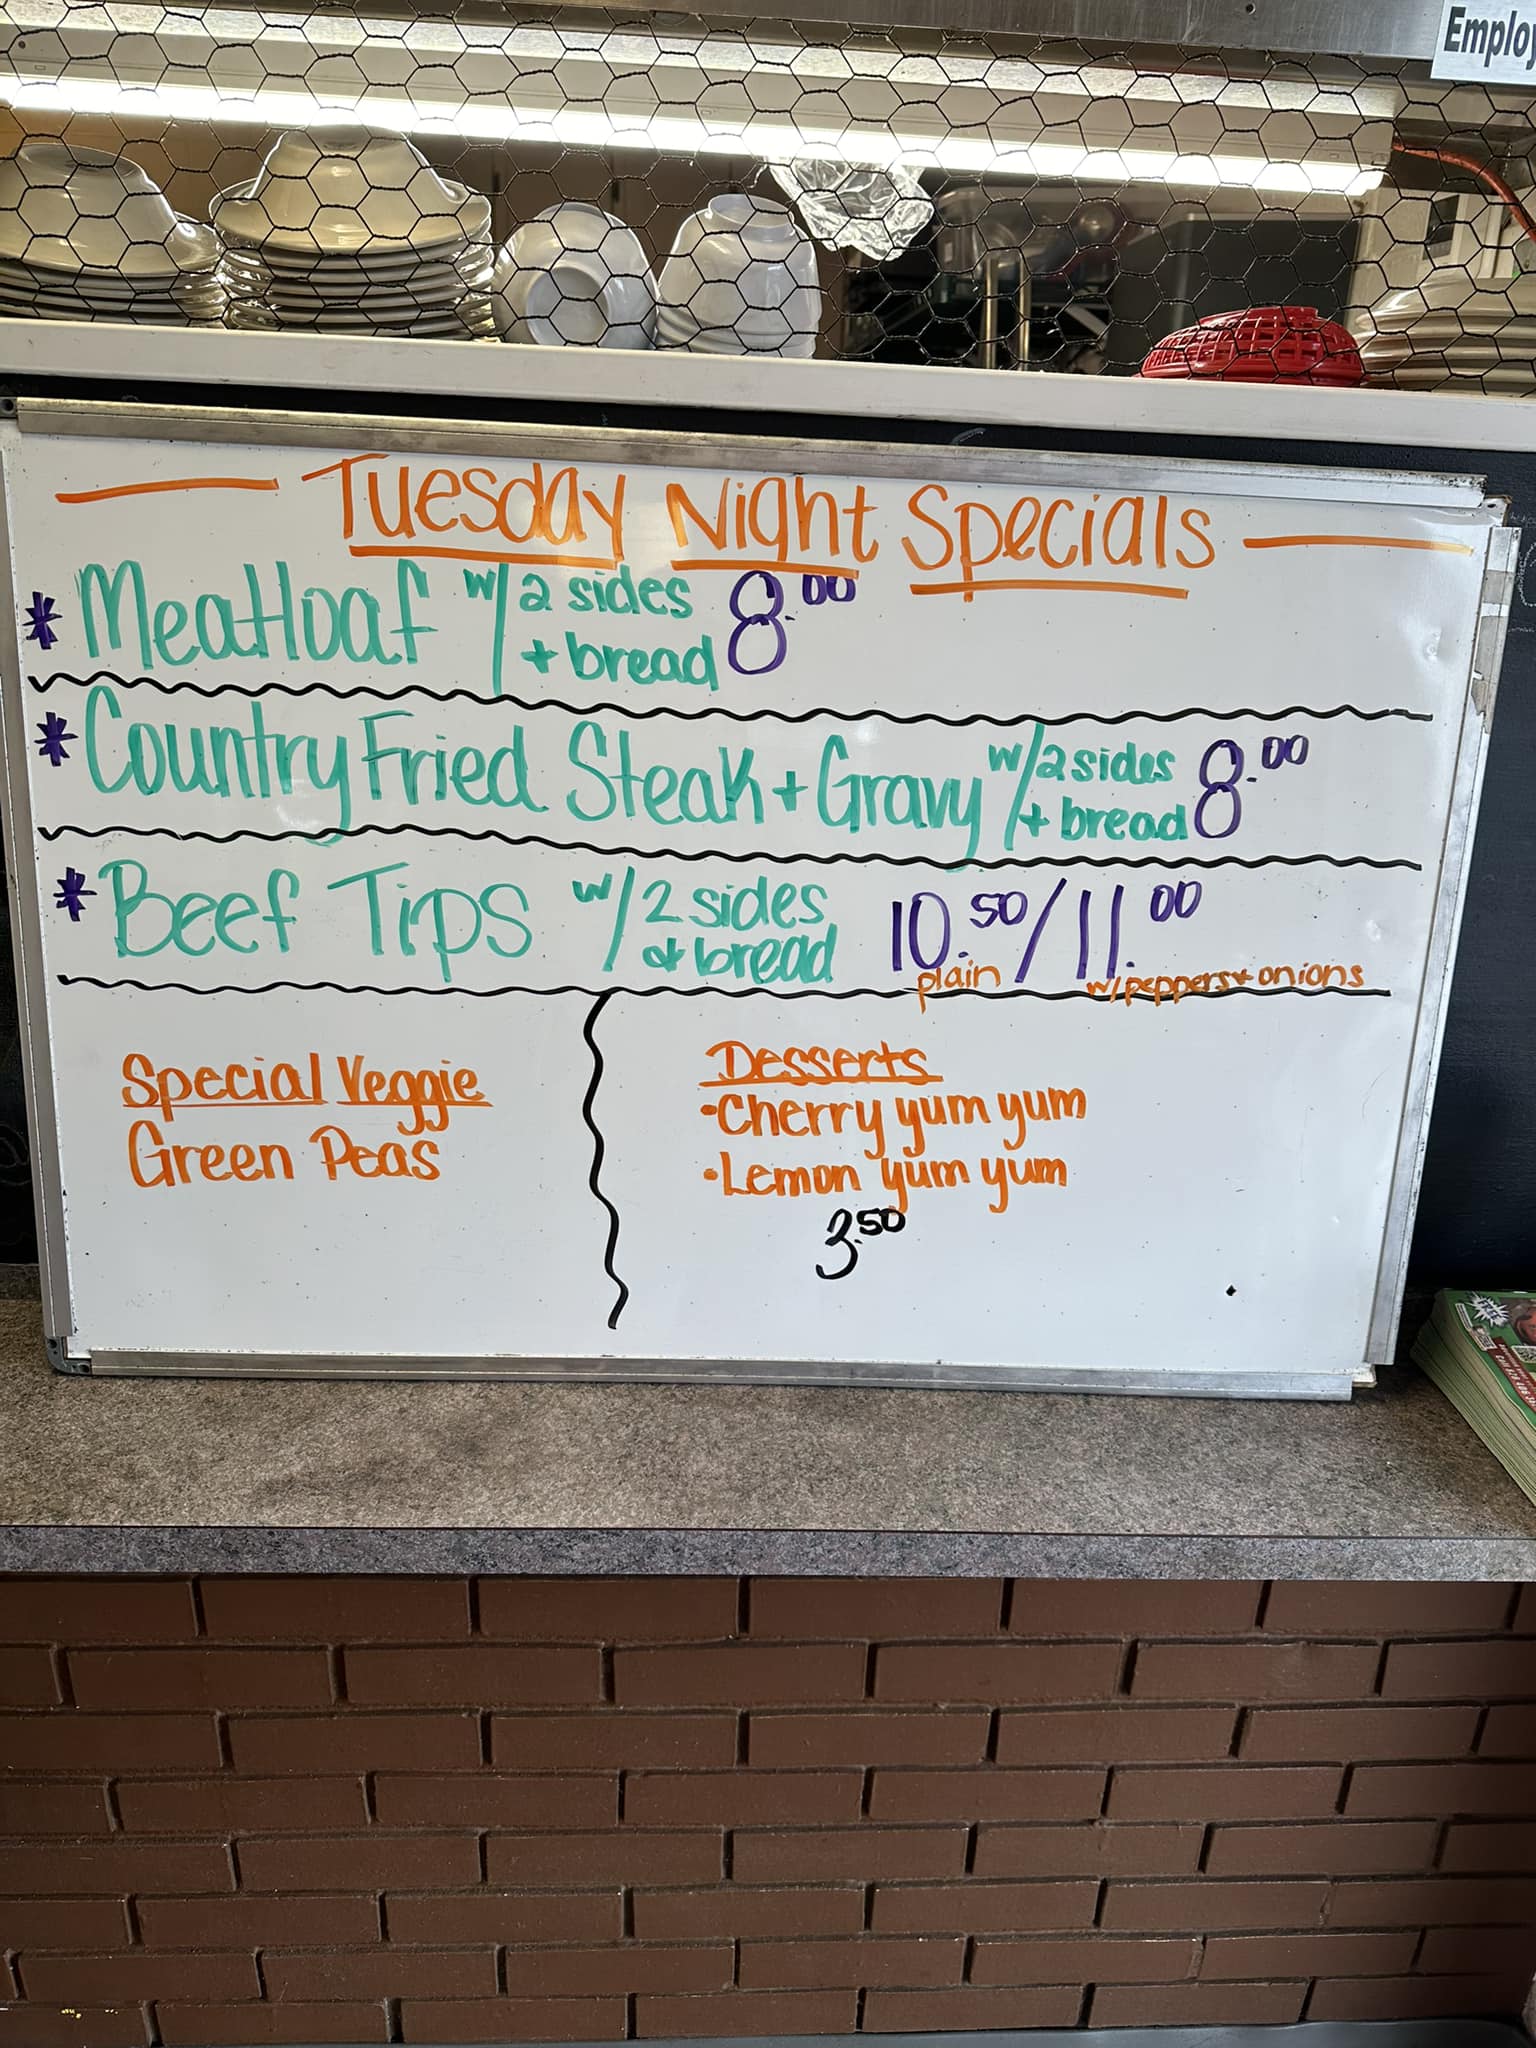 Employ
Tuesday Night Specials
* Meatloaf w/ 2 sides + bread 8.00
* Country Fried Steak + Gravy w/ 2 sides + bread 8.00
* Beef Tips w/ 2 sides & bread 10.50 / 11.00
plain w/ peppers + onions
Special Veggie
Green Peas
Desserts
• Cherry yum yum
• Lemon yum yum
3.50